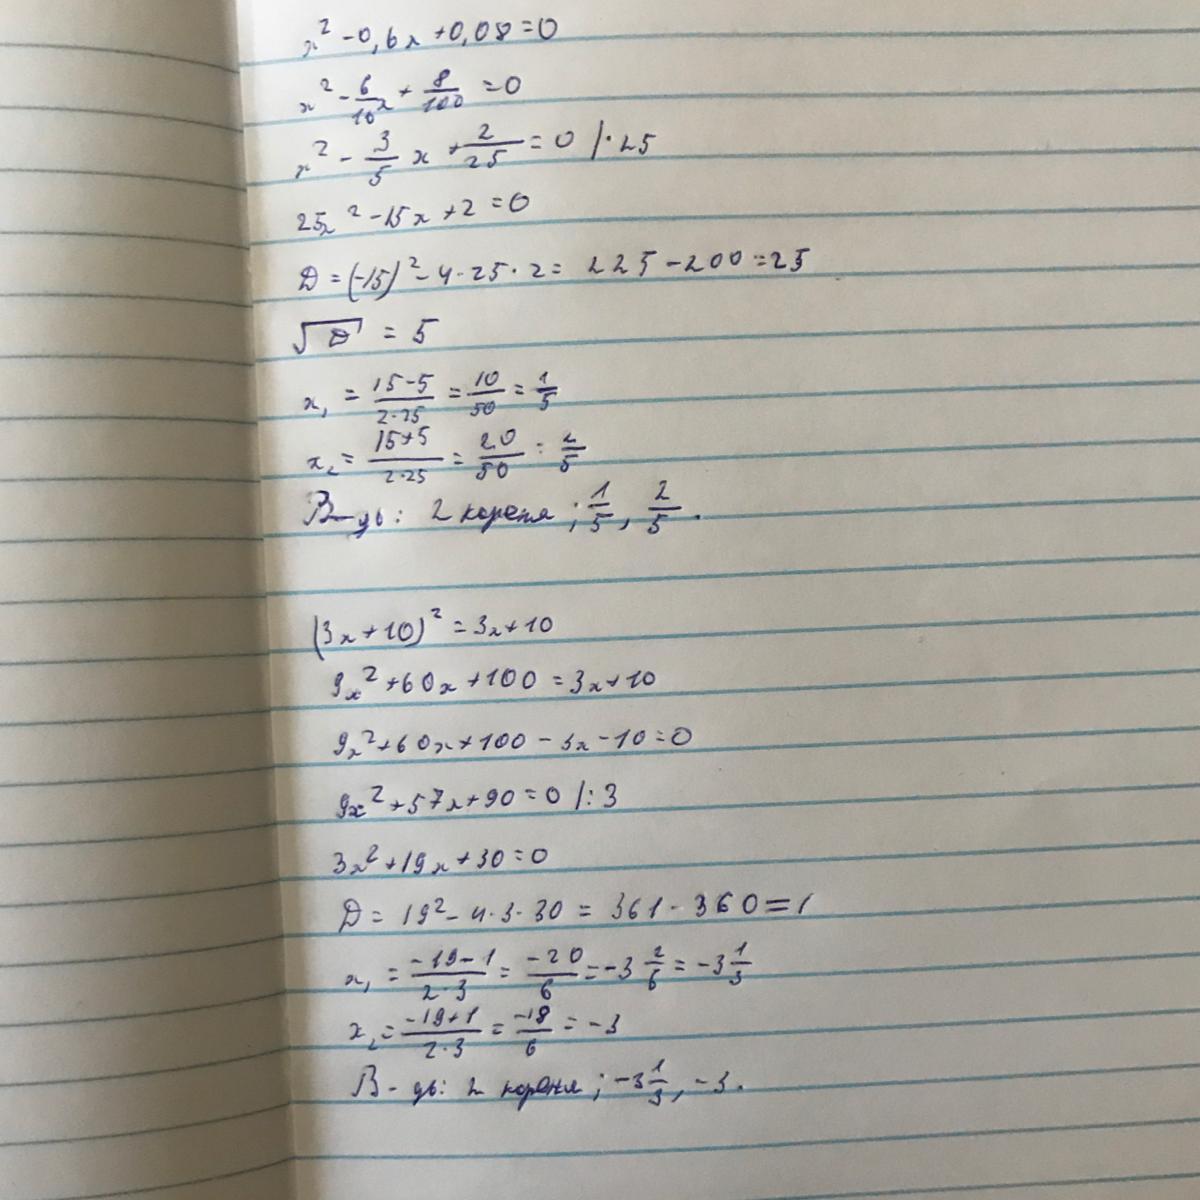 x² - 0,6x + 0,08 = 0
x² - 6/10 x + 8/100 = 0
x² - 3/5 x + 2/25 = 0 |·25
25x² - 15x + 2 = 0
D = (-15)² - 4·25·2 = 225 - 200 = 25
√D = 5
x₁ = (15-5)/(2·25) = 10/50 = 1/5
x₂ = (15+5)/(2·25) = 20/50 = 2/5
В-дь: 2 кореня ; 1/5, 2/5.
(3x+10)² = 3x+10
9x² + 60x + 100 = 3x + 10
9x² + 60x + 100 - 3x - 10 = 0
9x² + 57x + 90 = 0 |:3
3x² + 19x + 30 = 0
D = 19² - 4·3·30 = 361 - 360 = 1
x₁ = (-19-1)/(2·3) = -20/6 = -3 2/6 = -3 1/3
x₂ = (-19+1)/(2·3) = -18/6 = -3
В-дь: 2 кореня ; -3 1/3, -3.